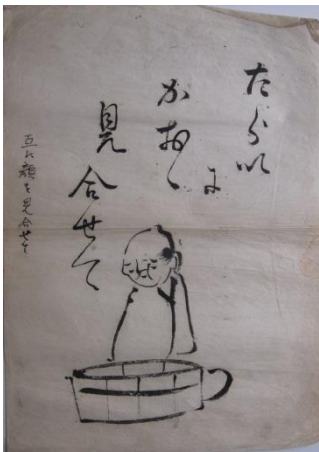 たらいに
かおゝ
見合せて
互に顔を見合せて